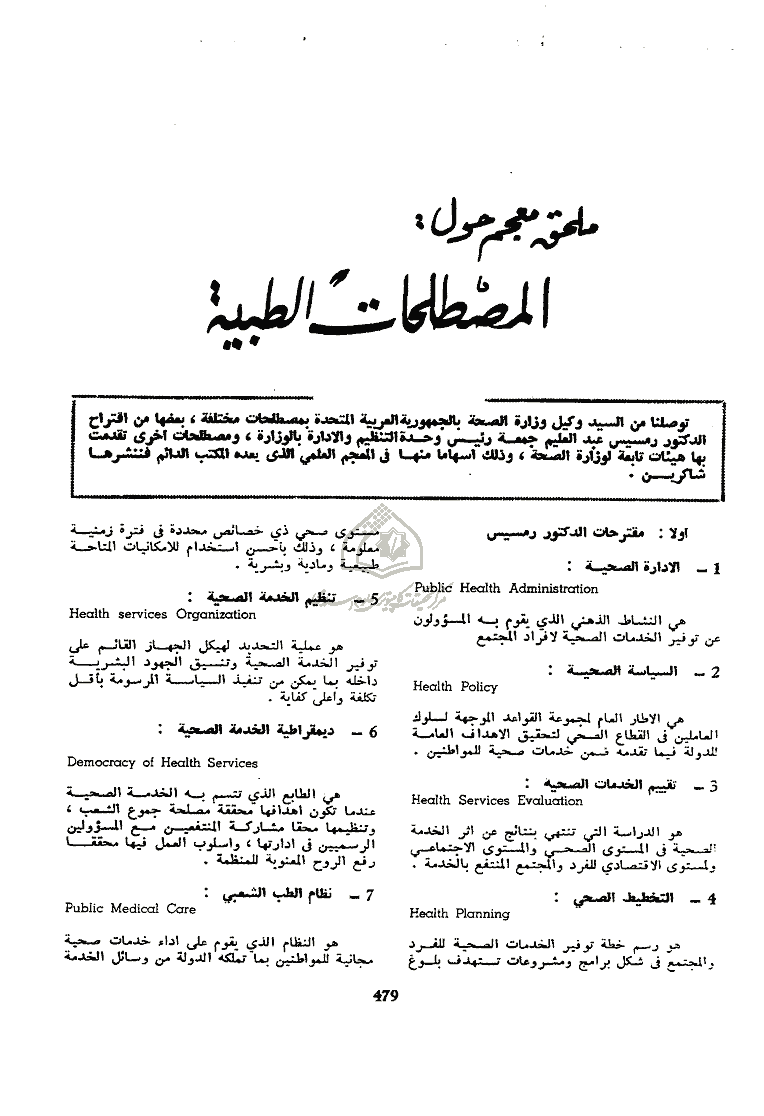 ملحق معجم حول :
المصطلحات الطبية
توصلنا من السيد وكيل وزارة الصحة بالجمهورية العربية المتحدة بمصطلحات مختلفة ، بعضها من اقتراح
الدكتور رمسيس عبد العليم جمعة رئيس وحدة التنظيم والادارة بالوزارة ، ومصطلحات اخرى تقدمت
بها هيئات تابعة لوزارة الصحة ، وذلك اسهاما منها فى المعجم العلمي الذى يعده المكتب الدائم فننشرها
شاكرين .
اولا : مقترحات الدكتور رمسيس
1 — الادارة الصحية :
Public Health Administration
هي النشاط الذهني الذي يقوم به المسؤولون
عن توفير الخدمات الصحية لافراد المجتمع
2 — السياسة الصحية :
Health Policy
هي الاطار العام لمجموعة القواعد الموجهة لسلوك
العاملين فى القطاع الصحي لتحقيق الاهداف العامة
للدولة فيما تقدمه ضمن خدمات صحية للمواطنين .
3 — تقييم الخدمات الصحية :
Health Services Evaluation
هو الدراسة التي تنتهي بنتائج عن اثر الخدمة
الصحية فى المستوى الصحي والمستوى الاجتماعي
ولمستوى الاقتصادي للفرد والمجتمع المنتفع بالخدمة .
4 — التخطيط الصحي :
Health Planning
هو رسم خطة توفير الخدمات الصحية للفرد
والمجتمع فى شكل برامج ومشروعات تستهدف بلوغ
مستوى صحي ذي خصائص محددة فى فترة زمنية
معلومة ، وذلك بأحسن استخدام للامكانيات المتاحة
طبيعية ومادية وبشرية .
5 — تنظيم الخدمة الصحية :
Health services Organization
هو عملية التحديد لهيكل الجهاز القائم على
توفير الخدمة الصحية وتنسيق الجهود البشرية
داخله بما يمكن من تنفيذ السياسة المرسومة بأقل
تكلفة وأعلى كفاية .
6 — ديمقراطية الخدمة الصحية :
Democracy of Health Services
هي الطابع الذي تتسم به الخدمة الصحية
عندما تكون اهدافها محققة مصلحة جموع الشعب ،
وتنظيمها محقا مشاركة المنتفعين مع المسؤولين
الرسميين فى ادارتها ، واسلوب العمل فيها محققا
رفع الروح المعنوية للمنظمة .
7 — نظام الطب الشعبي :
Public Medical Care
هو النظام الذي يقوم على اداء خدمات صحية
مجانية للمواطنين بما تملكه الدولة من وسائل الخدمة
479